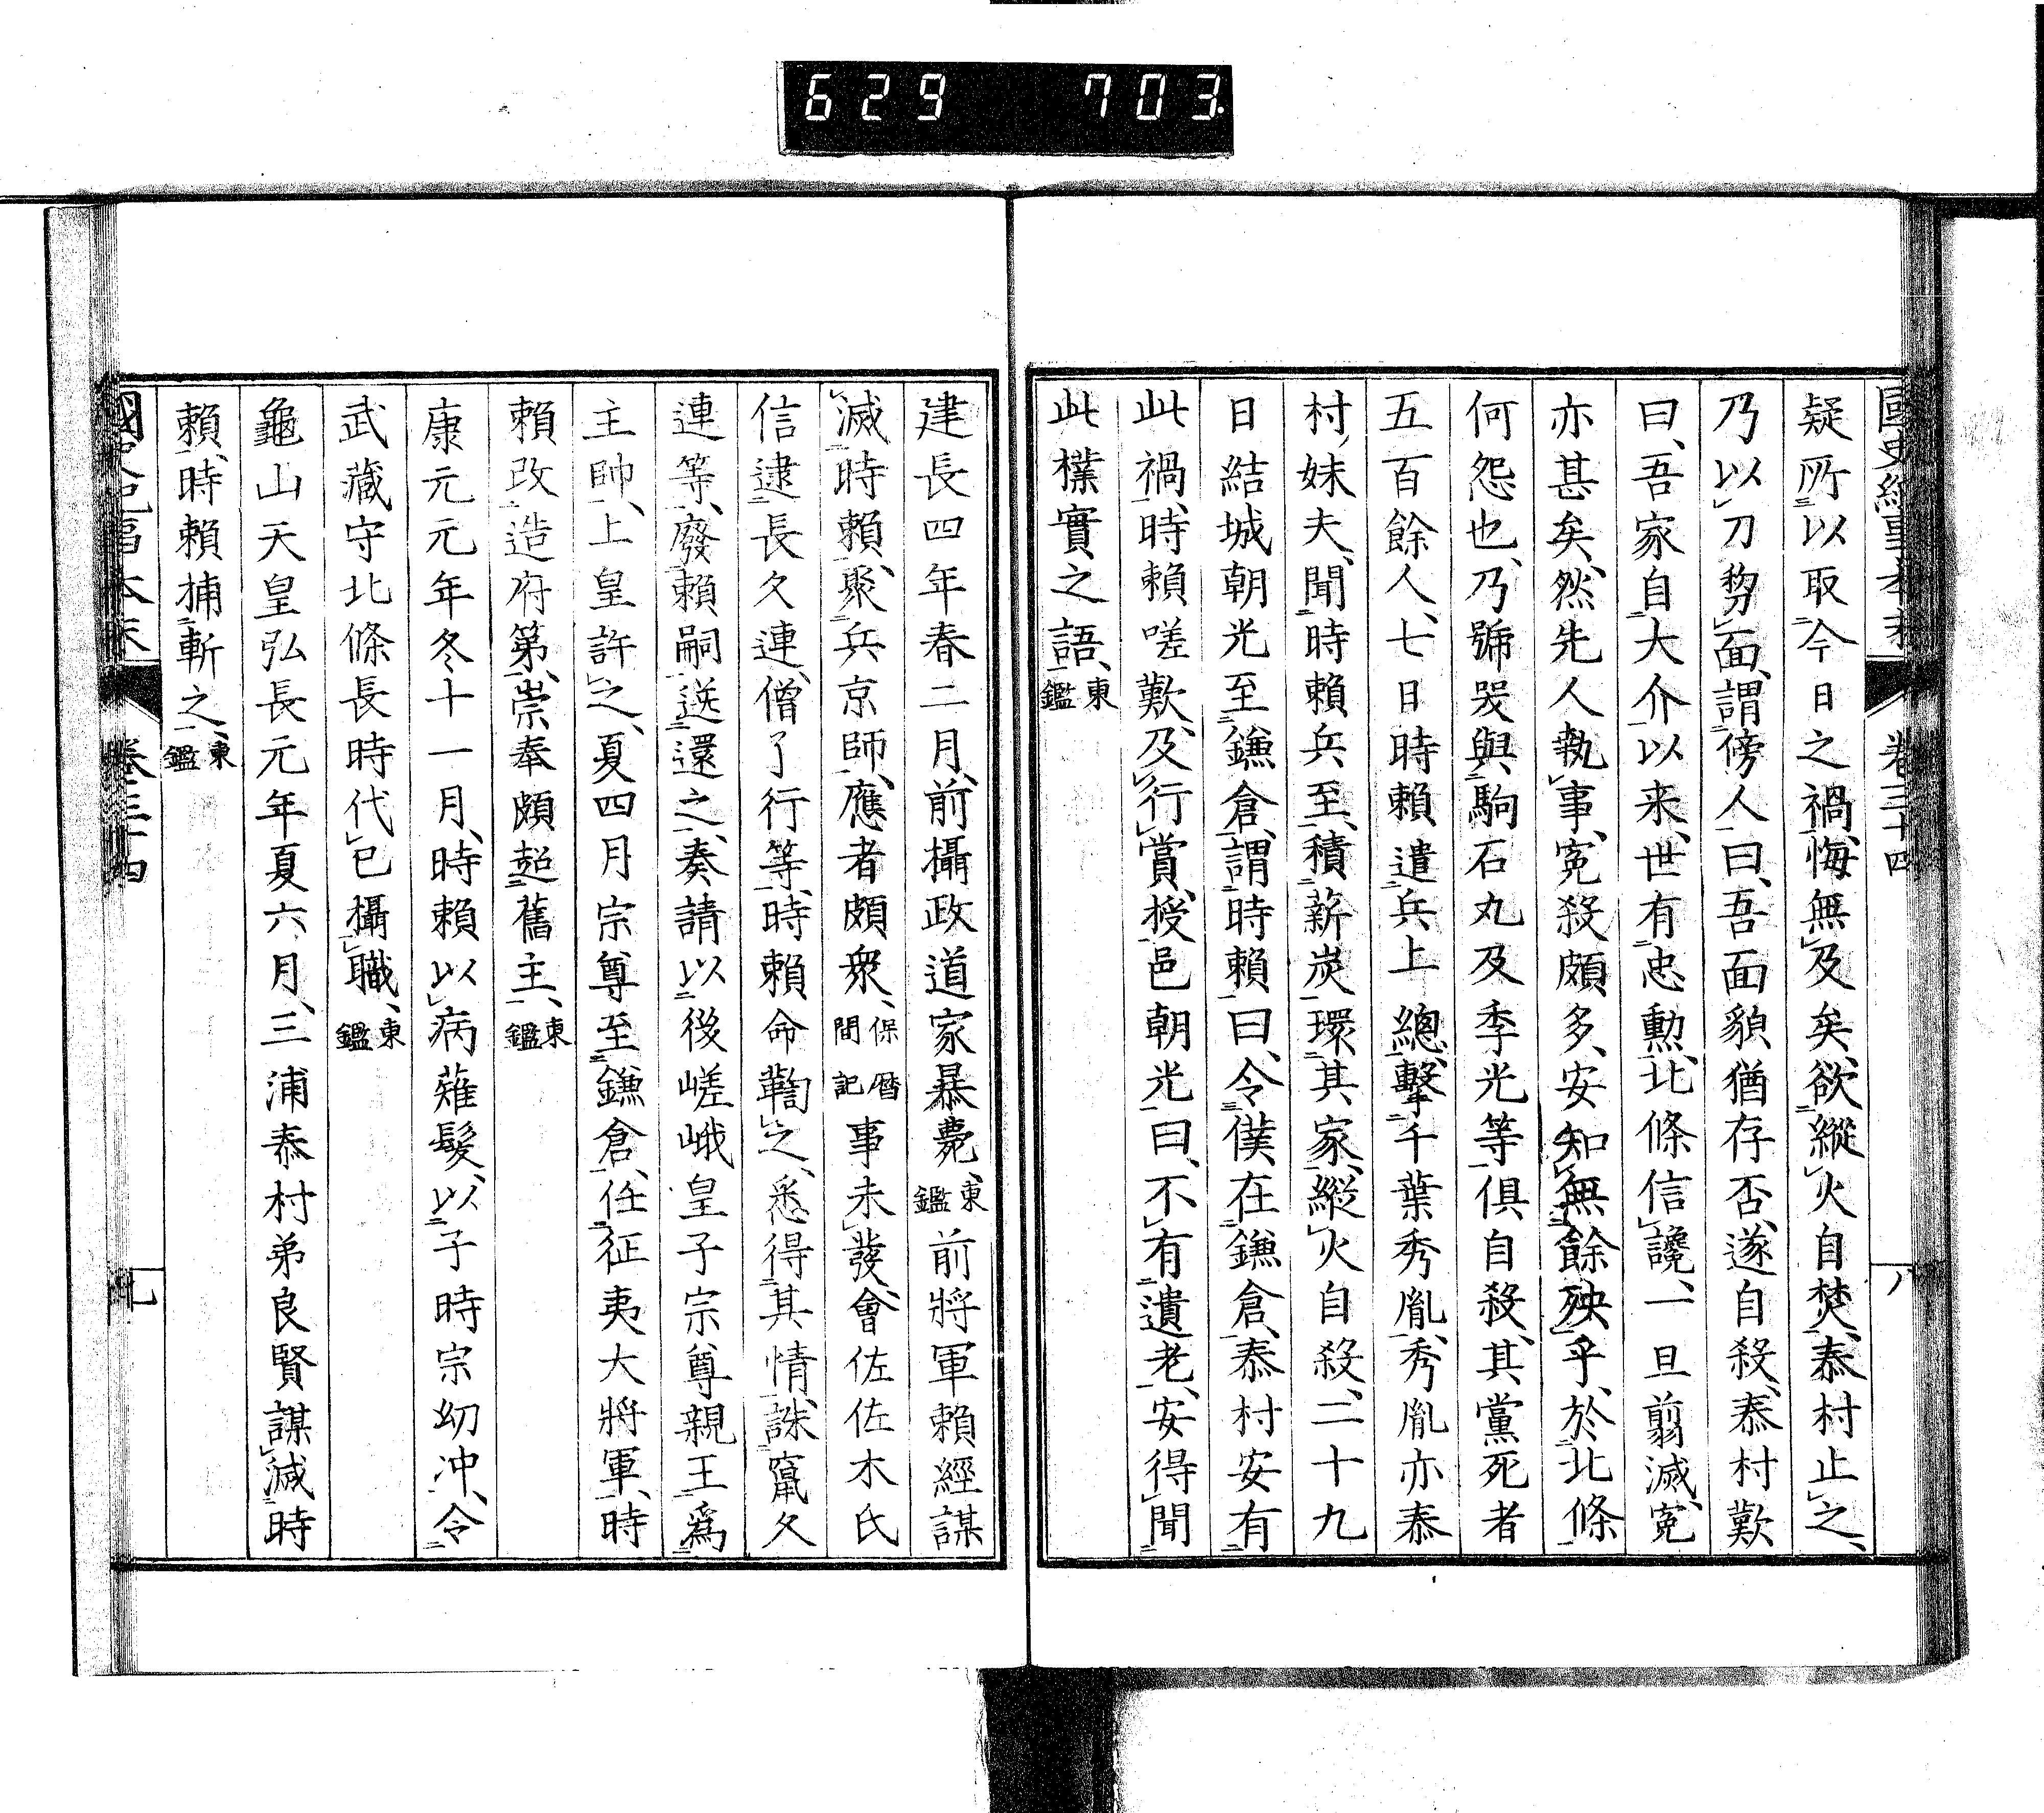 629 703
國史紀事本末 卷三十四 八
疑所以取今日之禍、悔無及矣、欲縱火自焚、泰村止之、
乃以刀剺面、謂傍人曰、吾面貌猶存否、遂自殺、泰村歎
曰、吾家自大介以来、世有忠勳、北條信讒、一旦翦滅、寃
亦甚矣、然先人執事、寃殺頗多、安知無餘殃乎、於北條
何怨也、乃號哭與駒石丸及季光等俱自殺、其黨死者
五百餘人、七日時賴遣兵上總、擊千葉秀胤、秀胤亦泰
村妹夫、聞時賴兵至、積薪炭環其家、縱火自殺、二十九
日結城朝光至鎌倉、謂時賴曰、令僕在鎌倉、泰村安有
此禍、時賴嗟歎、及行賞、授邑朝光曰、不有遺老、安得聞
此樸實之語、東鑑
建長四年春二月、前攝政道家暴薨、東鑑前將軍賴經謀
滅時賴、聚兵京師、應者頗衆、保曆間記事未發、會佐佐木氏
信逮長久連、僧了行等、時賴命鞫之、悉得其情、誅竄久
連等、廢賴嗣送還之、奏請以後嵯峨皇子宗尊親王爲
主帥、上皇許之、夏四月宗尊至鎌倉、任征夷大將軍、時
賴改造府第、崇奉頗超舊主、東鑑
康元元年冬十一月、時賴以病薙髮、以子時宗幼冲、令
武藏守北條長時代已攝職、東鑑
龜山天皇弘長元年夏六月、三浦泰村弟良賢謀滅時
賴、時賴捕斬之、東鑑
國史紀事本末 卷三十四 九